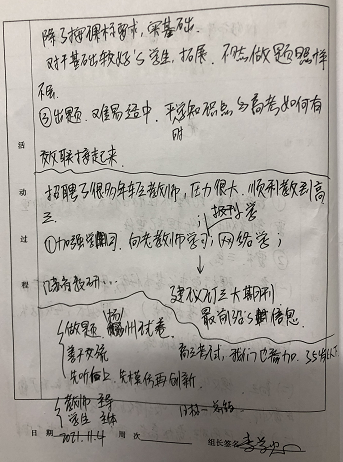 除了按课标要求，牢基础.
对于基础较好的学生，拓展.不然做题照样
不
③出题.难易适中.平常知识点与高考如何有
时
效联接起来.
招聘了很多年轻教师，压力很大.顺利教到高
三.
报刊学
①加强学习.向老教师学习；网络学；
教研…
建议订三大期刊
最前沿的信息.
做题 州试卷
善于交流 高三考试，我们也参加.35岁以下
先听 上.先模仿再创新.
教师 主导
学生 主体
活动过程
日期 2021.11.4 周次 组长签名